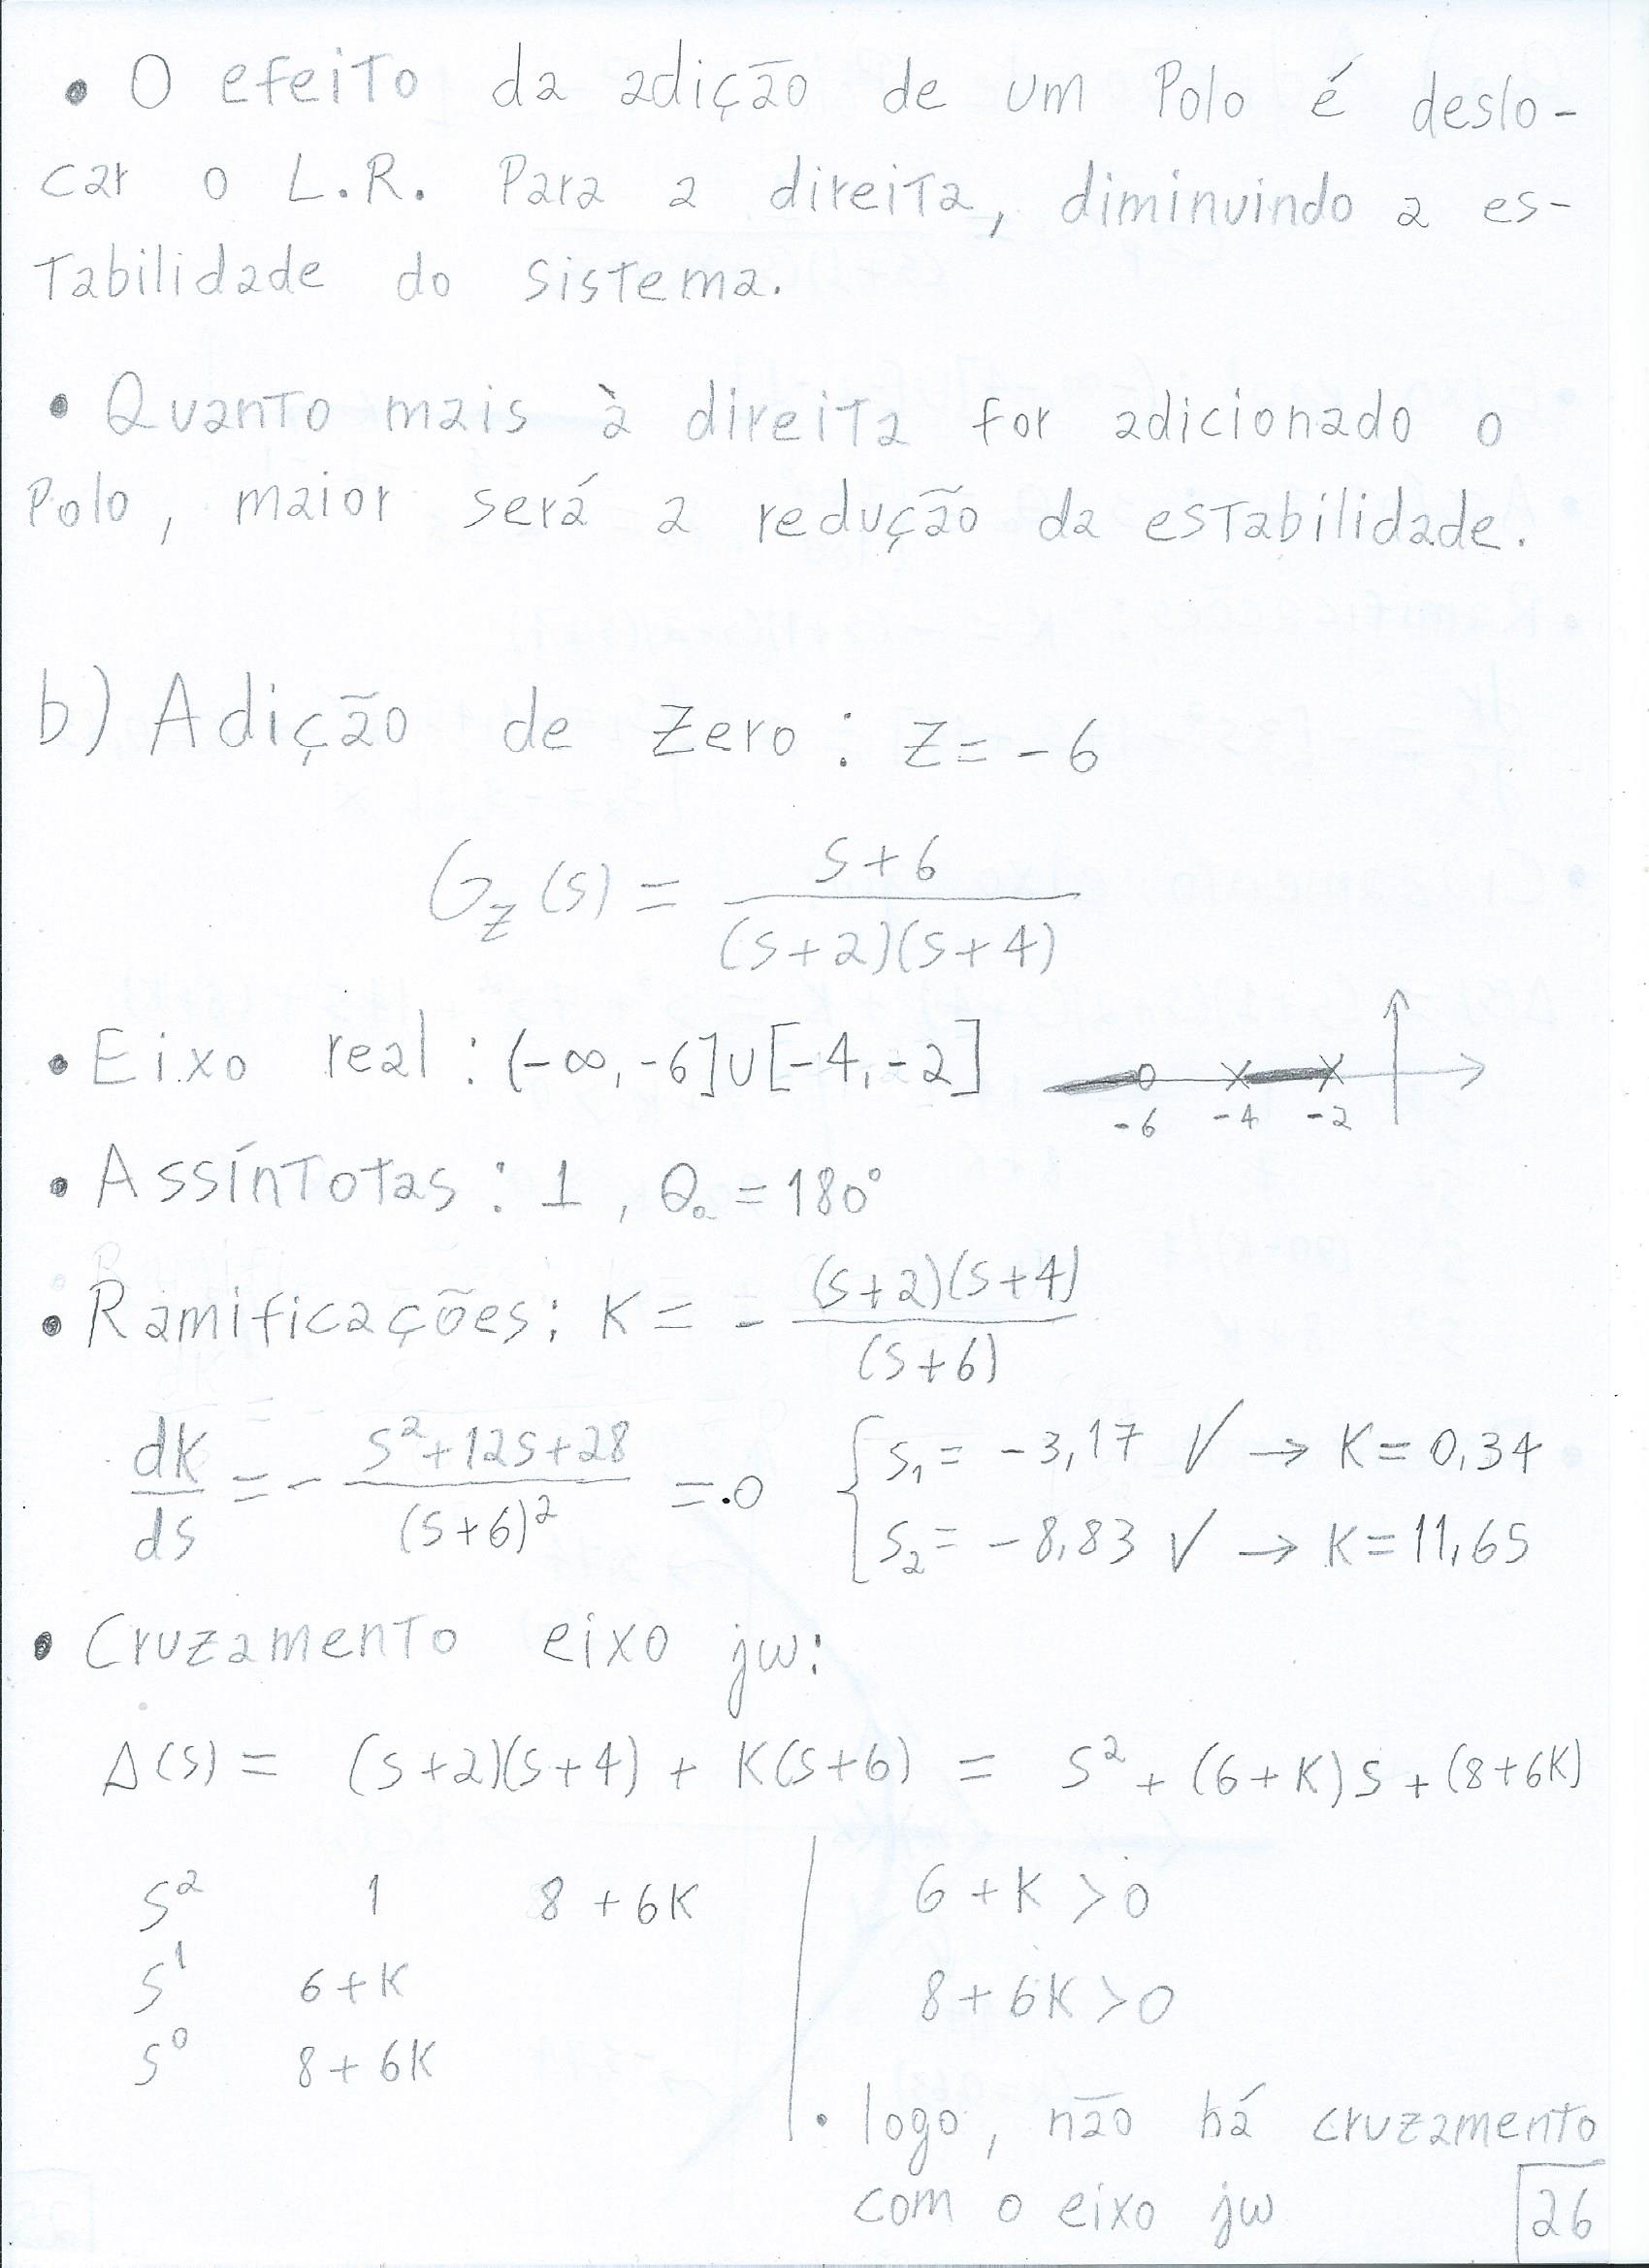 • O efeito da adição de um Polo é deslo-
car o L.R. Para a direita, diminuindo a es-
tabilidade do sistema.
• Quanto mais à direita for adicionado o
Polo, maior será a redução da estabilidade.
b) Adição de zero: z = -6
G_z(s) = (s+6)/((s+2)(s+4))
• Eixo real: (-∞,-6]∪[-4,-2]
-6 -4 -2
• Assíntotas: 1, θₐ = 180°
• Ramificações: K = - (s+2)(s+4)/(s+6)
dK/ds = - (s²+12s+28)/(s+6)² = 0 { s₁ = -3,17 ✓ → K = 0,34
s₂ = -8,83 ✓ → K = 11,65
• Cruzamento eixo jω:
Δ(s) = (s+2)(s+4) + K(s+6) = s² + (6+K)s + (8+6K)
s² 1 8+6K
s¹ 6+K
s⁰ 8+6K
6+K > 0
8+6K > 0
• logo, não há cruzamento
com o eixo jω
26